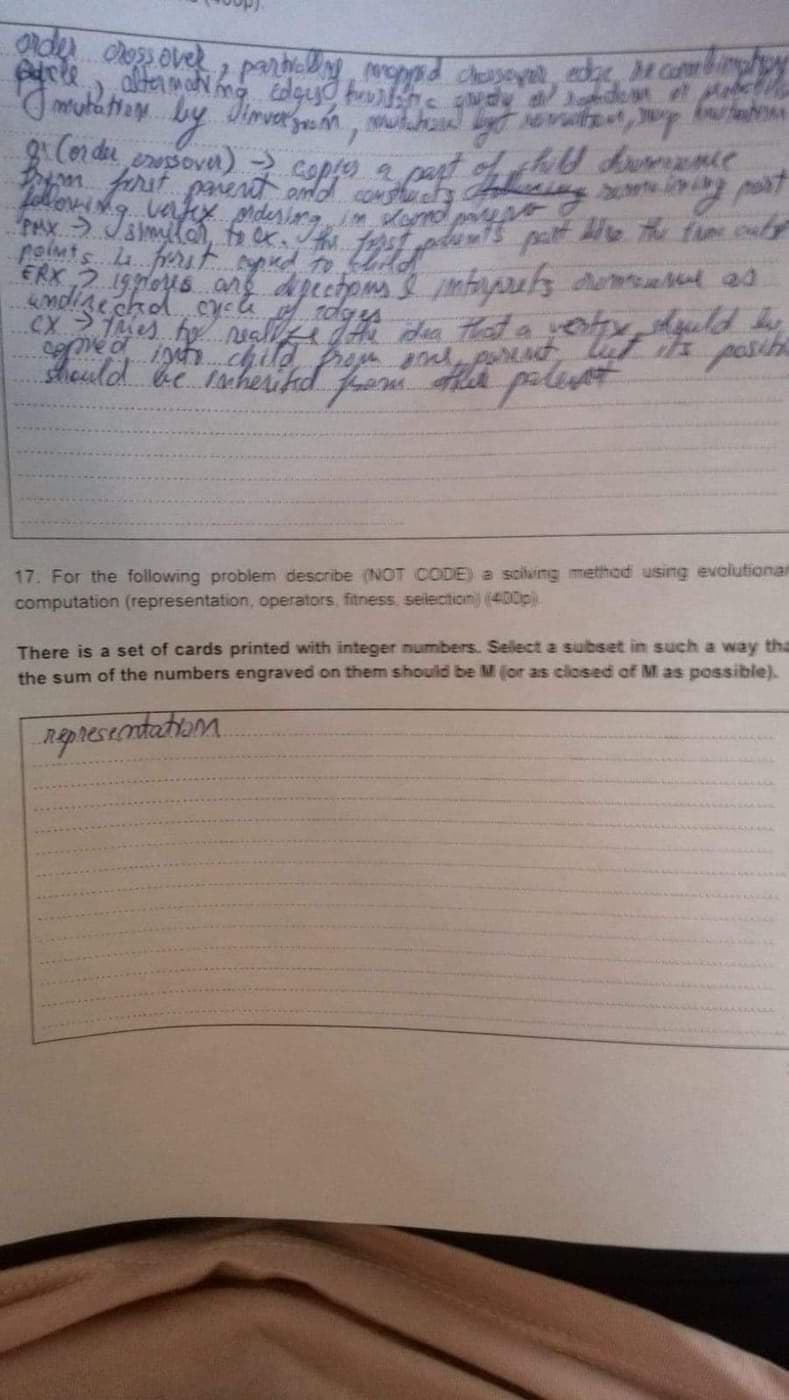 order crossover, partially mapped crossover, edge recombination
cycle, alternating edges, heuristic greedy or random or
mutation by inversion, mutation by insertion, swap mutation
(order crossover) → copies a part of child chromosome
from first parent and constructs remaining part
following vertex ordering in second parent
PMX → similar to ox. the first parent's part like the two cuts
points is first copied to child
ERX → ignores any directions & interprets chromosome as
undirected cycle of edges
CX → tries to realize the idea that a vertex should be
copied into child from one parent but its positi
should be inherited from other parent
17. For the following problem describe (NOT CODE) a solving method using evolutionar
computation (representation, operators, fitness, selection) (400p).
There is a set of cards printed with integer numbers. Select a subset in such a way tha
the sum of the numbers engraved on them should be M (or as closed of M as possible).
representation